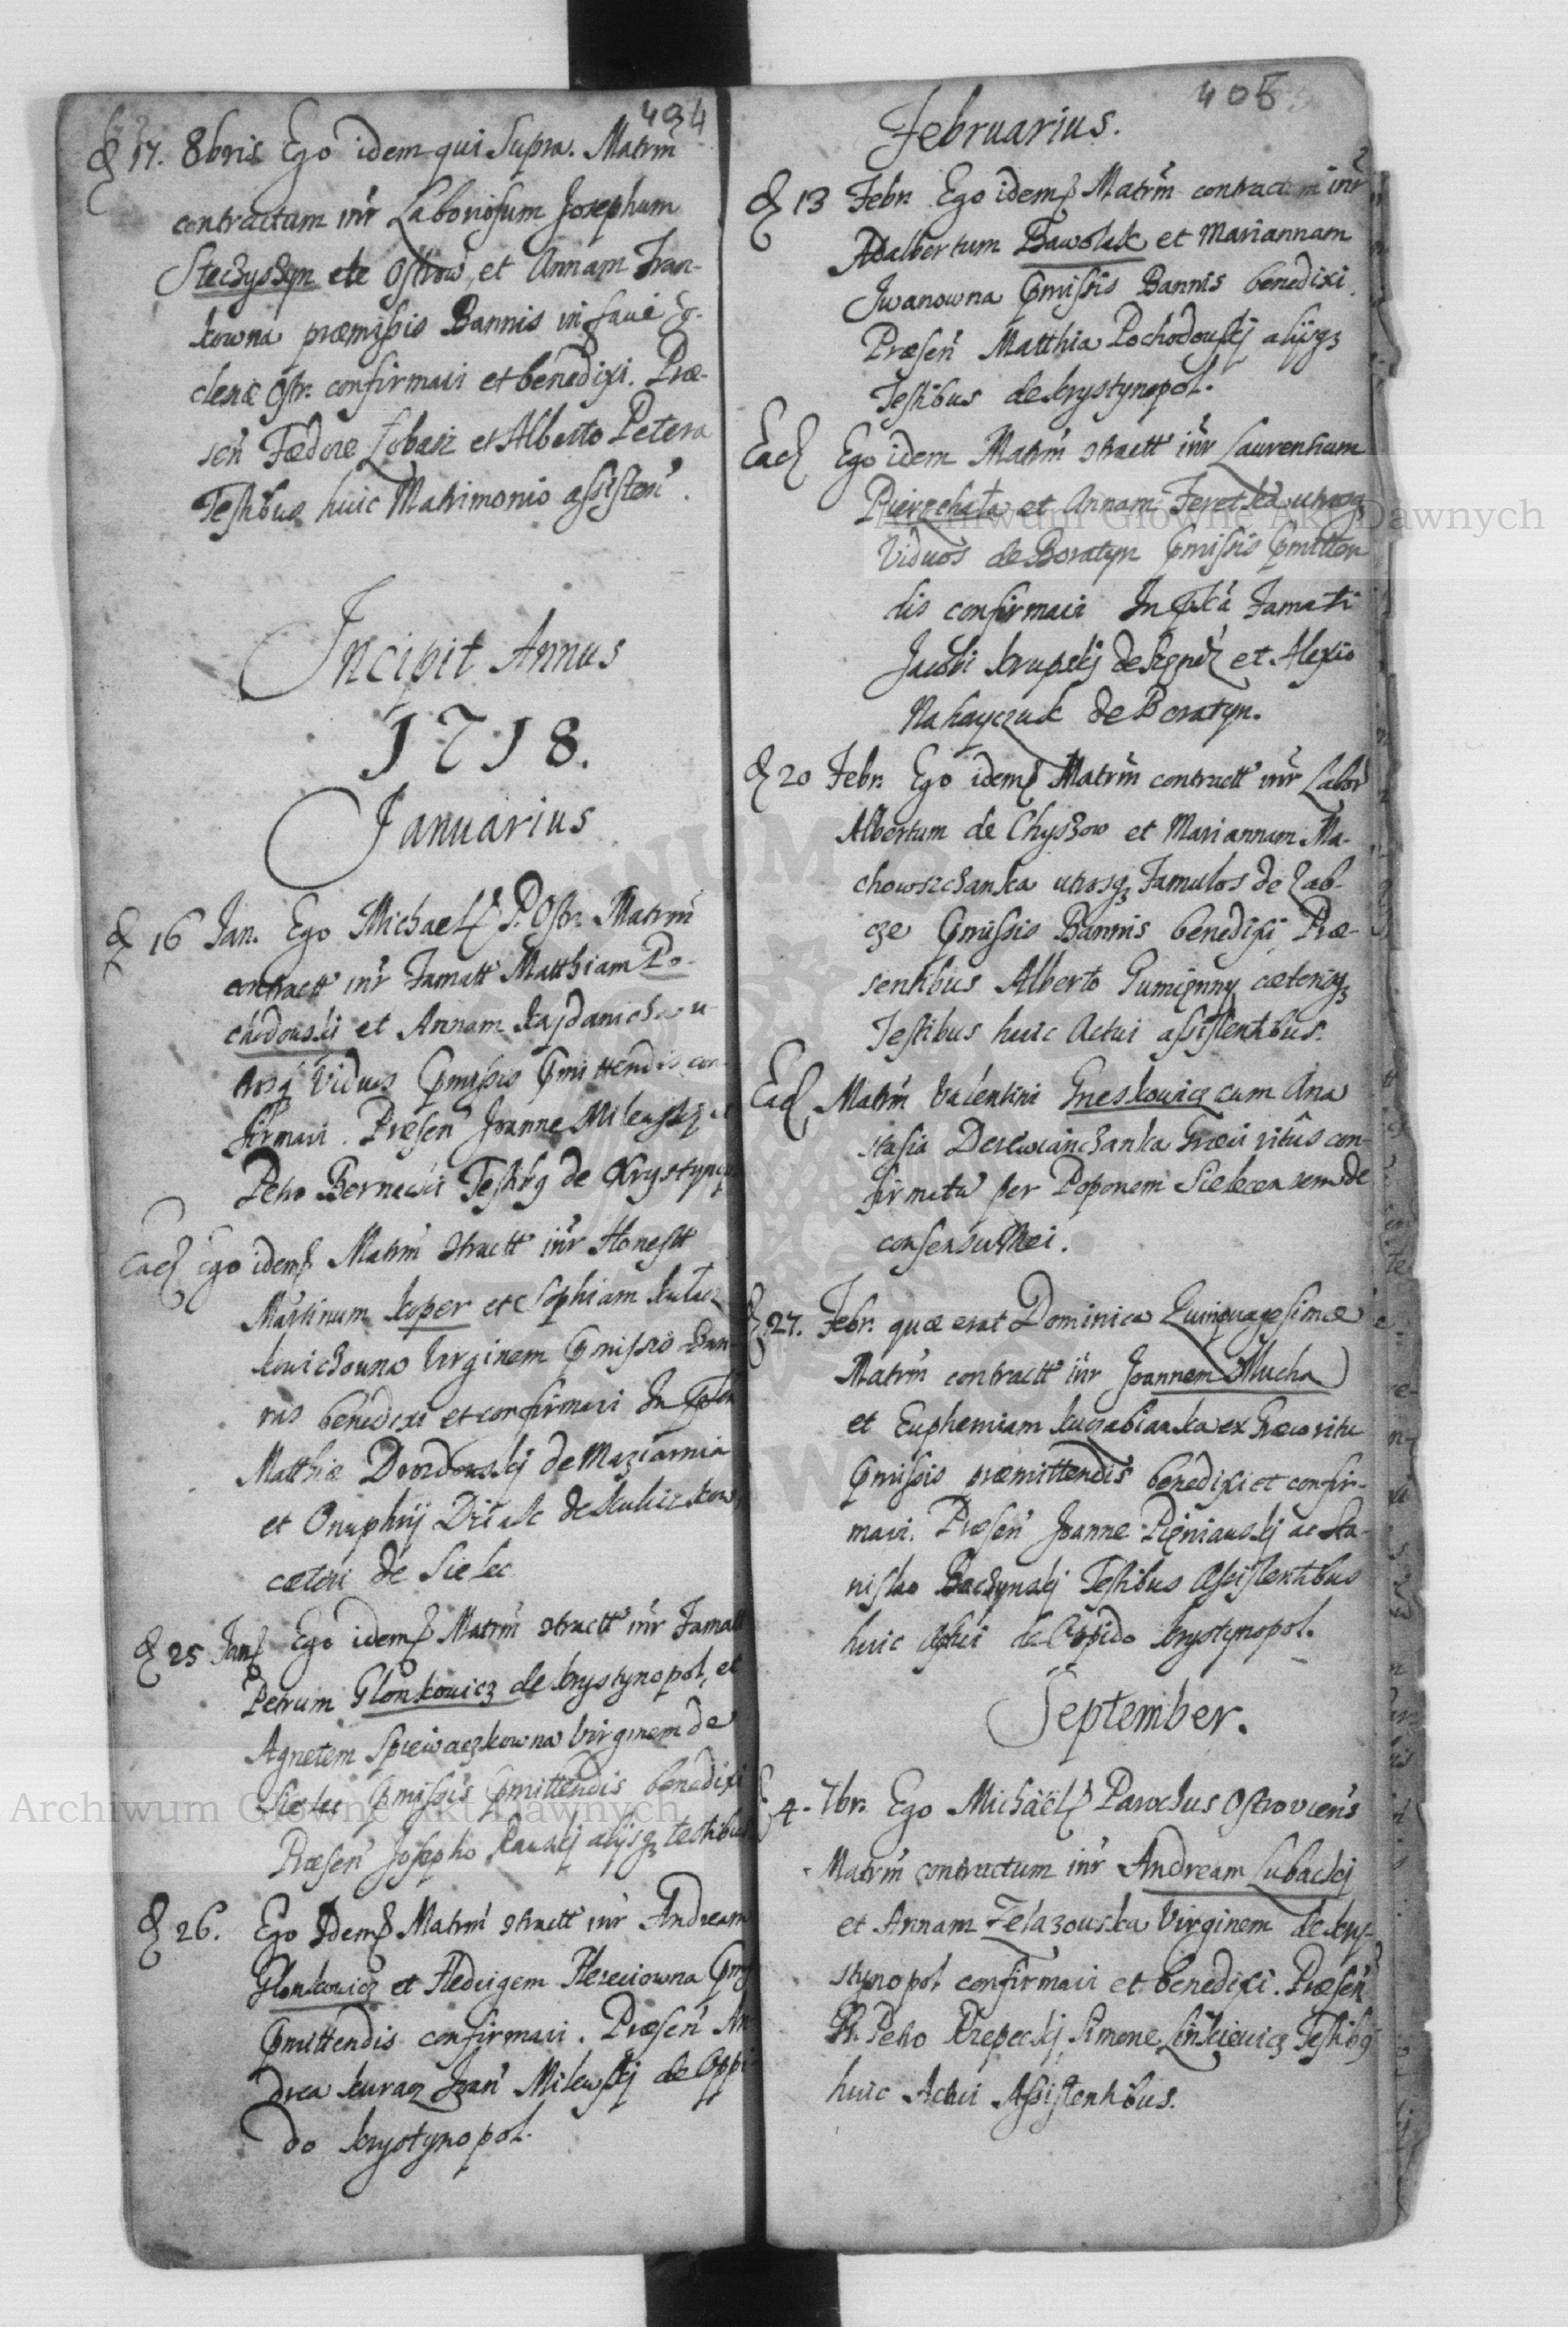 404
D 17. 8bris Ego idem qui Supra. Matrm
contractum inr Laboriosum Josephum
Steczyszyn de Ostrow, et Annam Fran-
kowna præmissis Bannis in facie Ec-
clesiæ Ostr. confirmavi et benedixi. Præ-
sen Fædore Lobasz et Alberto Petera
Testibus huic Matrimonio assisten.
Incipit Annus
1718.
Januarius
D 16 Jan. Ego Michael P. Ostr. Matrm
contractt inr Famatt Matthiam Po-
chodouski et Annam Kajdanicha u-
trosq Viduos Pmissis Pmittendis con-
firmavi. Præsen Joanne Mileuskj et
Petro Bernawit Testibq de Krystynop
Ead Ego idem Matrm 9tractt inr Honestt
Martinum Koper et Sophiam Kulacz-
kowiczouna Virginem Pmissis Ban-
nis benedixi et confirmavi In Psen
Matthiæ Dvordouskj de Maziarnia
et Onuphrij Diiak de Kuliczkow
cæteri de Sielec
D 25 Jan Ego idem Matrm 9tractt inr Famatt
Petrum Glonkowicz de Krystynopol, et
Agnetem Spiewaczkowna Virginem de
Sielec Pmissis Pmittendis benedixi
Præsen Josepho Rauskj alijsq testibus
D 26. Ego Idem Matrm 9tractt inr Andream
Glonkowicz et Hedvigem Hereciowna Pmis
Pmittendis confirmavi. Præsen An
drea Kuracz Joan Milewskj de Oppi
do Krystynopol.
405
Februarius.
D 13 Febr. Ego idem Matrm contractum inr
Adalbertum Bawolak et Mariannam
Iwanowna Pmissis Bannis benedixi.
Præsen Matthia Pochodouskj alijq
Testibus de Krystynopol.
Ead Ego idem Matrm 9tractt inr Laurentium
Pierzchała et Annam Feretka utrosq
Viduos de Boratyn Pmissis Pmitten
dis confirmavi In Psta Famati
Jacobi Krupskj de et Alexio
Nahayczuk de Boratyn.
D 20 Febr. Ego idem Matrm contractt inr Labor
Albertum de Chyszow et Mariannam Ma-
chowszczanka utrosq Famulos de Zab-
cze Pmissis Bannis benedixi Præ-
sentibus Alberto Gumięnny cæterisq
Testibus huic Actui assistentibus.
Ead Matrm Valentini Gneskowicz cum Ana
stasia Derewianczanka Græci ritus con-
firmatu per Poponem Sielecensem de
consensu Mei.
D 27. Febr. quæ erat Dominica Quinquagesimæ
Matrm contractt inr Joannem Mucha
et Euphemiam Kurabianka ex Græco ritu
Pmissis præmittendis benedixi et confir-
mavi. Præsen Joanne Pięniauskj ac Sta-
nislao Baczynskj Testibus Assistentibus
huic Actui de Oppido Krystynopol.
September.
D 4. 7br. Ego Michäel Parochus Ostroviens
Matrm contractum inr Andream Lubackj
et Annam Zelazouska Virginem de Kry-
stynopol confirmavi et benedixi. Præsen
Petro Krzepeckj Simone Linkiewicz Testibq
huic Actui Assistentibus.
Archiwum Główne Akt Dawnych
Archiwum Główne Akt Dawnych